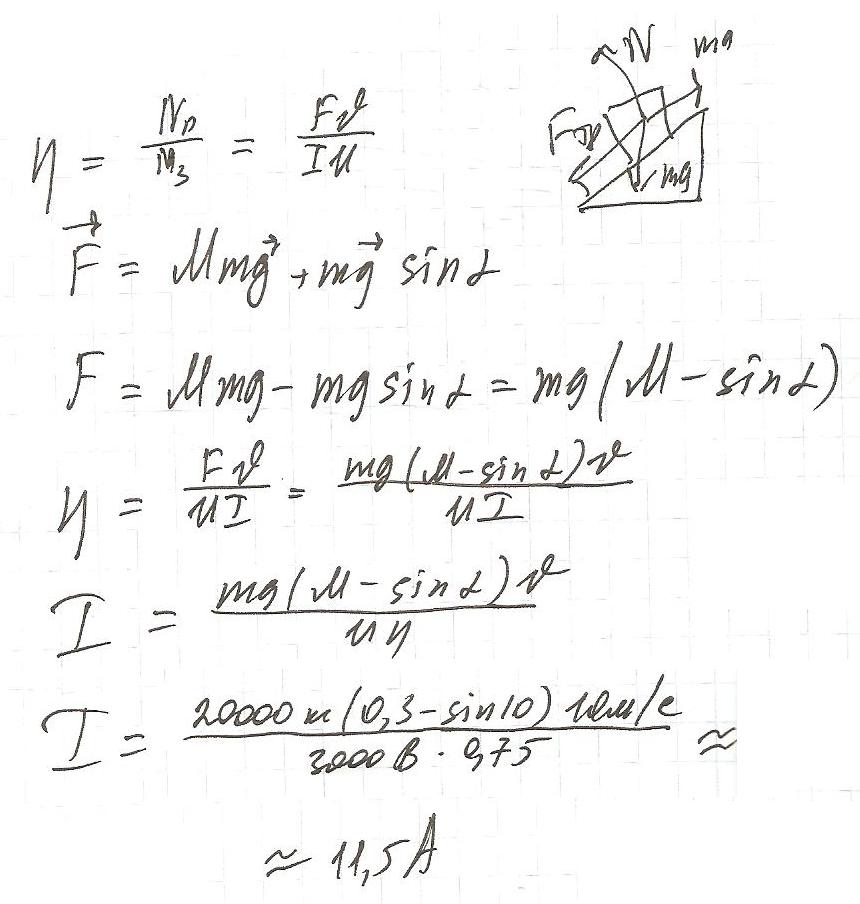 N mg
Fтр
mg
η = Nп/Nз = Fυ/IU
F⃗ = μmg⃗ + mg⃗ sinα
F = μmg - mg sinα = mg(μ - sinα)
η = Fυ/UI = mg(μ - sinα)υ/UI
I = mg(μ - sinα)υ/Uη
I = 20000 кг(0,3 - sin10) 10м/с / 3000 В · 0,75 ≈
≈ 11,5 A